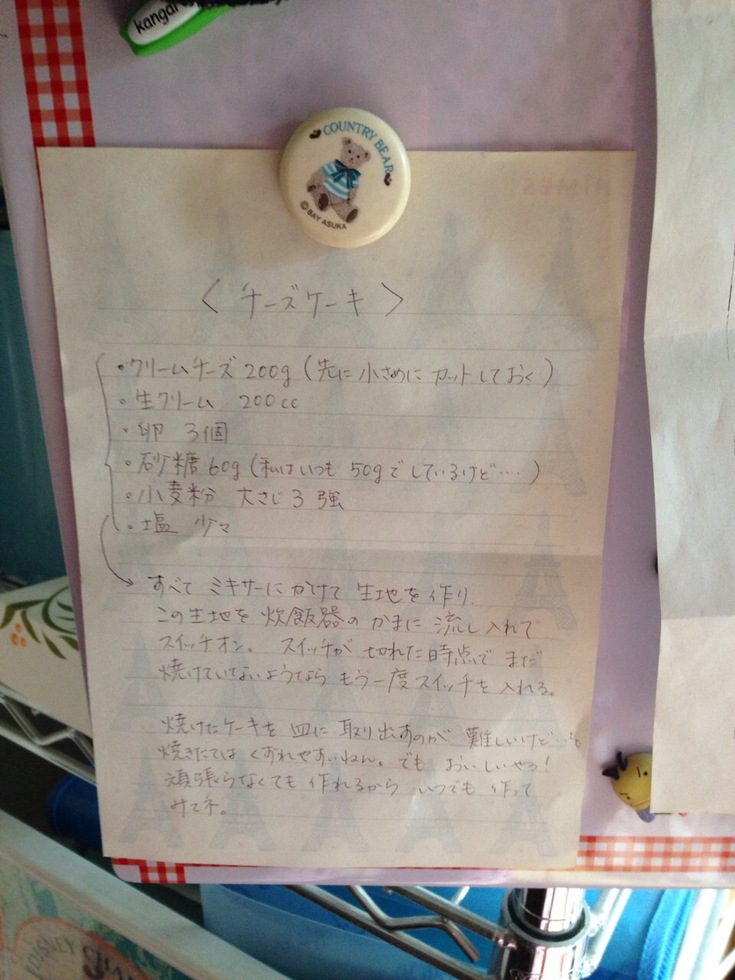 kangar
COUNTRY BEAR
© BAY ASUKA
〈チーズケーキ〉
・クリームチーズ 200g (先に 小さめに カットしておく)
・生クリーム 200cc
・卵 3個
・砂糖 60g (私はいつも 50gで しているけど‥‥)
・小麦粉 大さじ3強
・塩 少々
すべて ミキサーにかけて 生地を作り
この生地を 炊飯器の かまに 流し入れて
スイッチオン。 スイッチが 切れた時点で まだ
焼けていないようなら もう一度スイッチを入れる。
焼けたケーキを 皿に 取り出すのが 難しいけど‥
焼きたては くずれやすいねん。でも おいしいやろ!
頑張らなくても 作れるから いつでも 作って
みてネ。
DISNEY